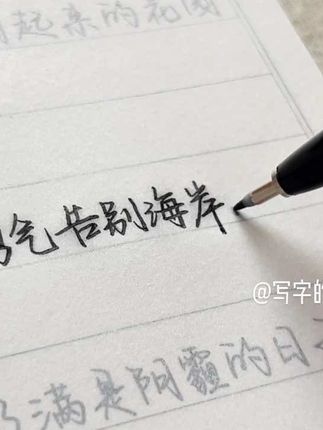 起来的花园
气告别海岸
@写字的
满是阴霾的日